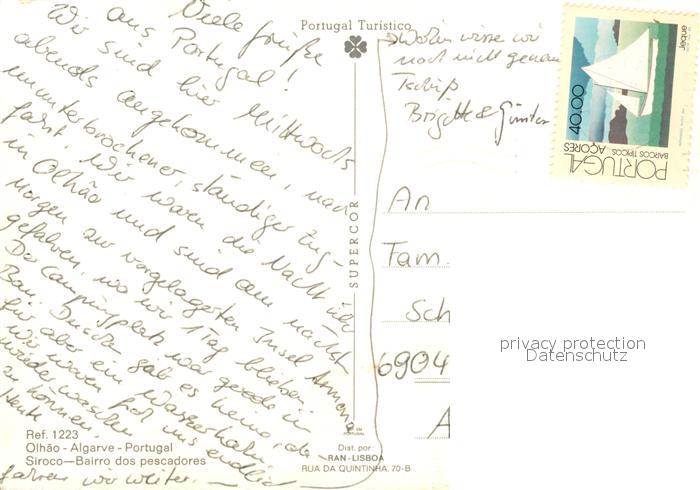 Portugal Turístico
Viele Grüße
aus Portugal!
Wir sind hier Mittwochs
abends angekommen, nach
ununterbrochener, ständiger Zug-
fahrt. Wir waren die Nacht über
in Olhão und sind am nächst.
Morgen zur vorgelagerten Insel Armona
gefahren, wo wir 1 Tag blieben.
Der Campingplatz war gerade in
Bau. Duschen gab es keine, da-
für aber ein Wasserhahn.
Wir waren froh uns endlich
wieder waschen
zu können.
Heute
fahren wir weiter. —
Wohin wissen wir
noch nicht genau
Tschüß
Brigitte & Günter
40.00
PORTUGAL
AÇORES
BARCOS TÍPICOS
SUPERCOR
An
Fam.
Sch
6904
A
privacy protection
Datenschutz
Ref. 1223
Olhão - Algarve - Portugal
Siroco — Bairro dos pescadores
Dist. por:
RAN - LISBOA
RUA DA QUINTINHA, 70-B